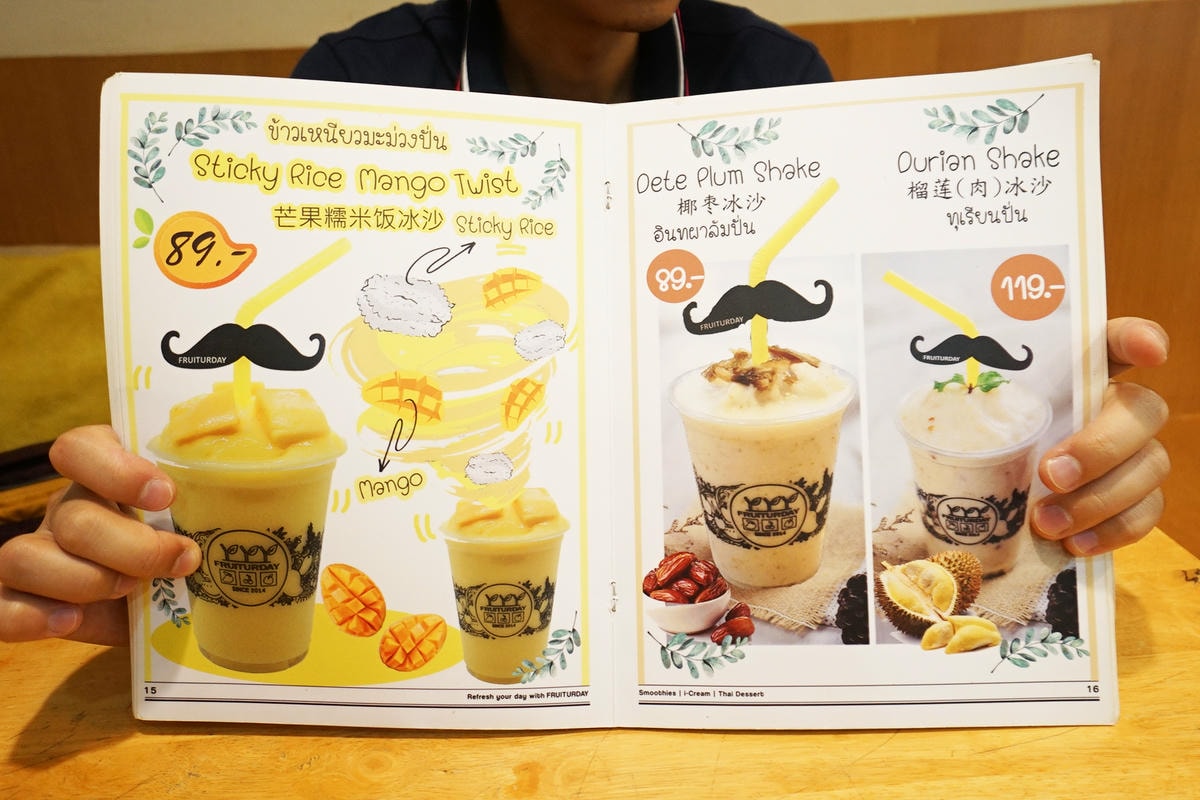 ข้าวเหนียวมะม่วงปั่น
Sticky Rice Mango Twist
芒果糯米饭冰沙 Sticky Rice
89.-
FRUITURDAY
Mango
FRUITURDAY
SINCE 2014
FRUITURDAY
SINCE 2014
15
Refresh your day with FRUITURDAY
Dete Plum Shake
椰枣冰沙
อินทผาลัมปั่น
89.-
FRUITURDAY
FRUITURDAY
SINCE 2014
Durian Shake
榴莲(肉)冰沙
ทุเรียนปั่น
119.-
FRUITURDAY
FRUITURDAY
SINCE 2014
Smoothies | i-Cream | Thai Dessert
16